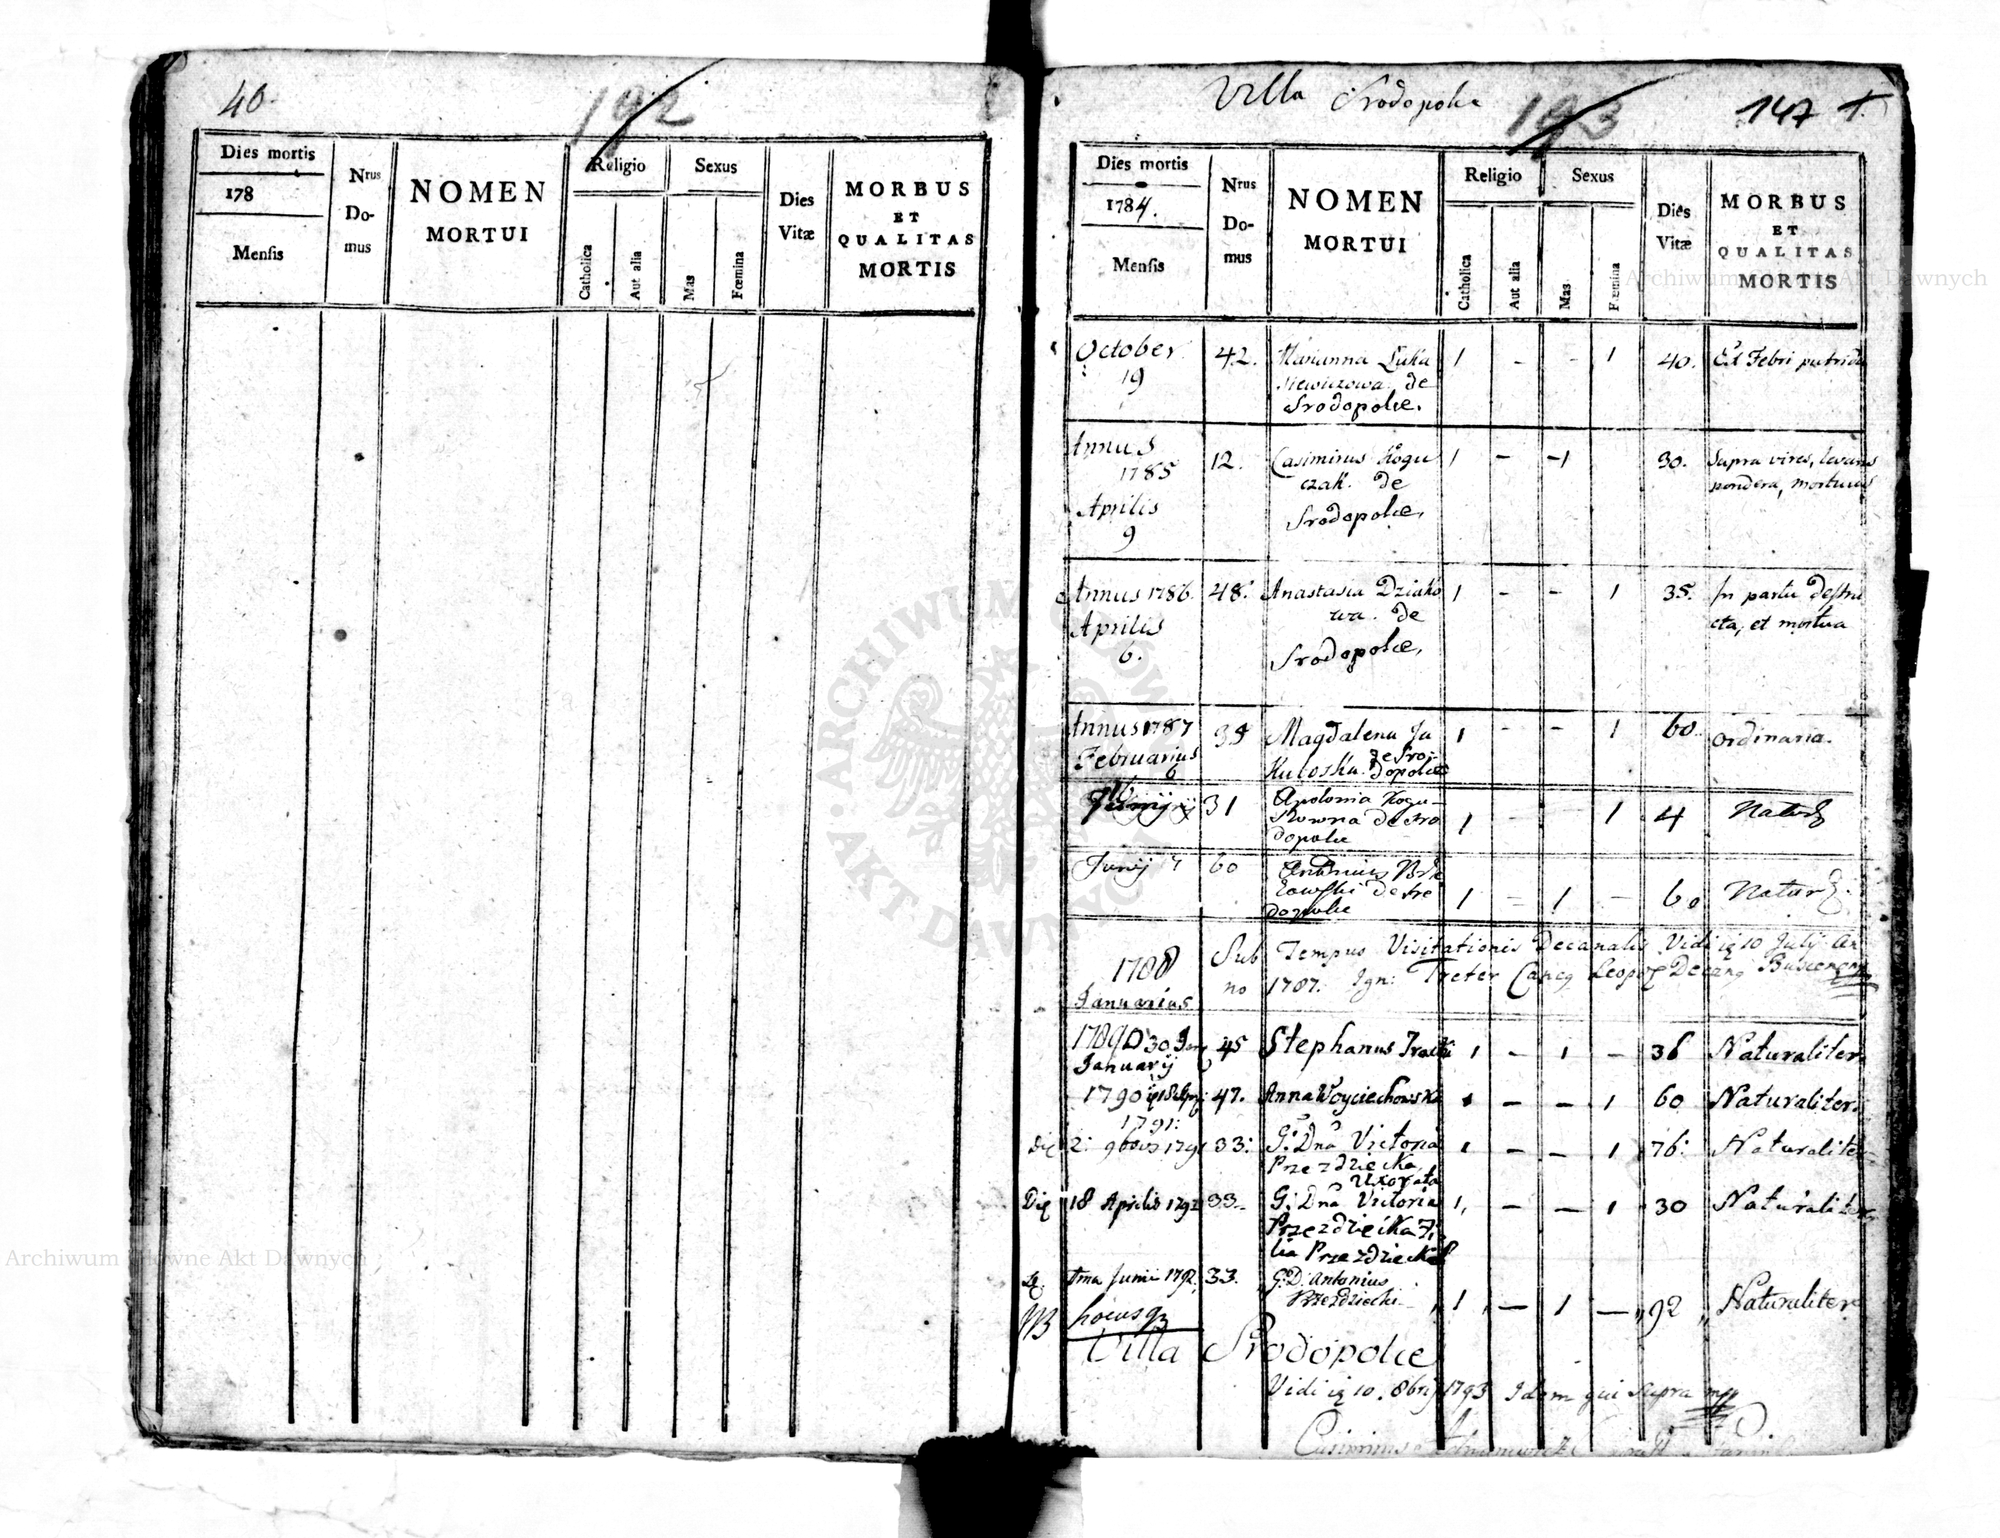 40.
192
Dies mortis
178
Mensis
Nrus
Do-
mus
NOMEN
MORTUI
Religio
Catholica
Aut alia
Sexus
Mas
Fœmina
Dies
Vitæ
MORBUS
ET
QUALITAS
MORTIS
Villa Srodopolce
193
147
Dies mortis
1784.
Mensis
Nrus
Do-
mus
NOMEN
MORTUI
Religio
Catholica
Aut alia
Sexus
Mas
Fœmina
Dies
Vitæ
MORBUS
ET
QUALITAS
MORTIS
October 42. Marianna Luka 1 - - 1 40. Ex Febri putrida
19 siewiczowa de
Srodopolce.
Annus 12. Casimirus Kogu 1 - - 1 30. Supra vires, levans
1785 czak. de pondera, mortuus
Aprilis Srodopolce,
9
Annus 1786. 48. Anastasia Dziako 1 - - 1 35. In partu destru
Aprilis wa. de cta, et mortua
6. Srodopolce,
Annus 1787 Magdalena Ja 1 - - 1 60. Ordinaria.
Februarius de Sro
dopolce
31 Apolonia Kogu- 1 - - 1 4
de Sro
dopolce
Junij 60 Antonius 1 - 1 - 60
de Sro
dopolce
1788 Sub Tempus Visitationis Decanalis Vidi 10 Julij An
Januarius no 1787. Ign: Treter
1789 D 30 45 Stephanus 1 - 1 - 36 Naturaliter
January
1790 18 47. Anna Woyciechowska 1 - - 1 60 Naturaliter.
1791:
Die 2: 9bris 1791 33: G: Dna Victoria 1 - - 1 76: Naturaliter
Przezdziecka
Uxorata
Die 18 Aprilis 1792 33 G: Dna Victoria 1, - - 1 30 Naturaliter
Przezdziecka Fi
lia Przezdziecka
Junii 1792. 33. G. D. Antonius
Przezdziecki 1 - 1 - 92 Naturaliter
hocusq
Villa Srodopolce
Vidi 10. 8bris 1793 Idem qui supra mp
Casimirus
Archiwum Główne Akt Dawnych
Archiwum Główne Akt Dawnych
· ARCHIWUM GŁÓWNE · AKT DAWNYCH